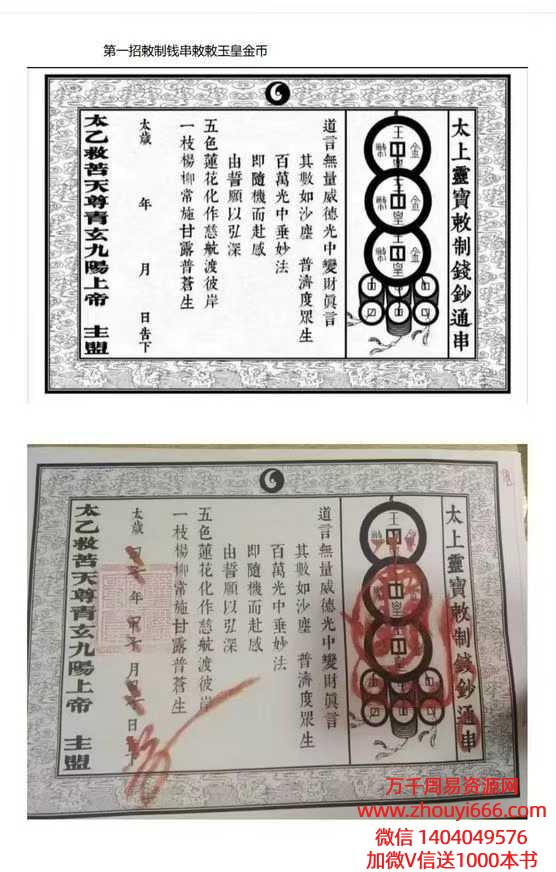 第一招敕制钱串敕敕玉皇金币
太上靈寶敕制錢鈔通串
道言無量威德光中變財眞言
其數如沙塵 普濟度眾生
百萬光中垂妙法
即隨機而赴感
由誓願以弘深
五色蓮花化作慈航渡彼岸
一枝楊柳常施甘露普蒼生
太歲 年 月 日告下
太乙救苦天尊青玄九陽上帝 主盟
太上靈寶敕制錢鈔通串
道言無量威德光中變財眞言
其數如沙塵 普濟度眾生
百萬光中垂妙法
即隨機而赴感
由誓願以弘深
五色蓮花化作慈航渡彼岸
一枝楊柳常施甘露普蒼生
太歲 年 月 日
太乙救苦天尊青玄九陽上帝 主盟
万千周易资源网
www.zhouyi666.com
微信 1404049576
加微V信送1000本书